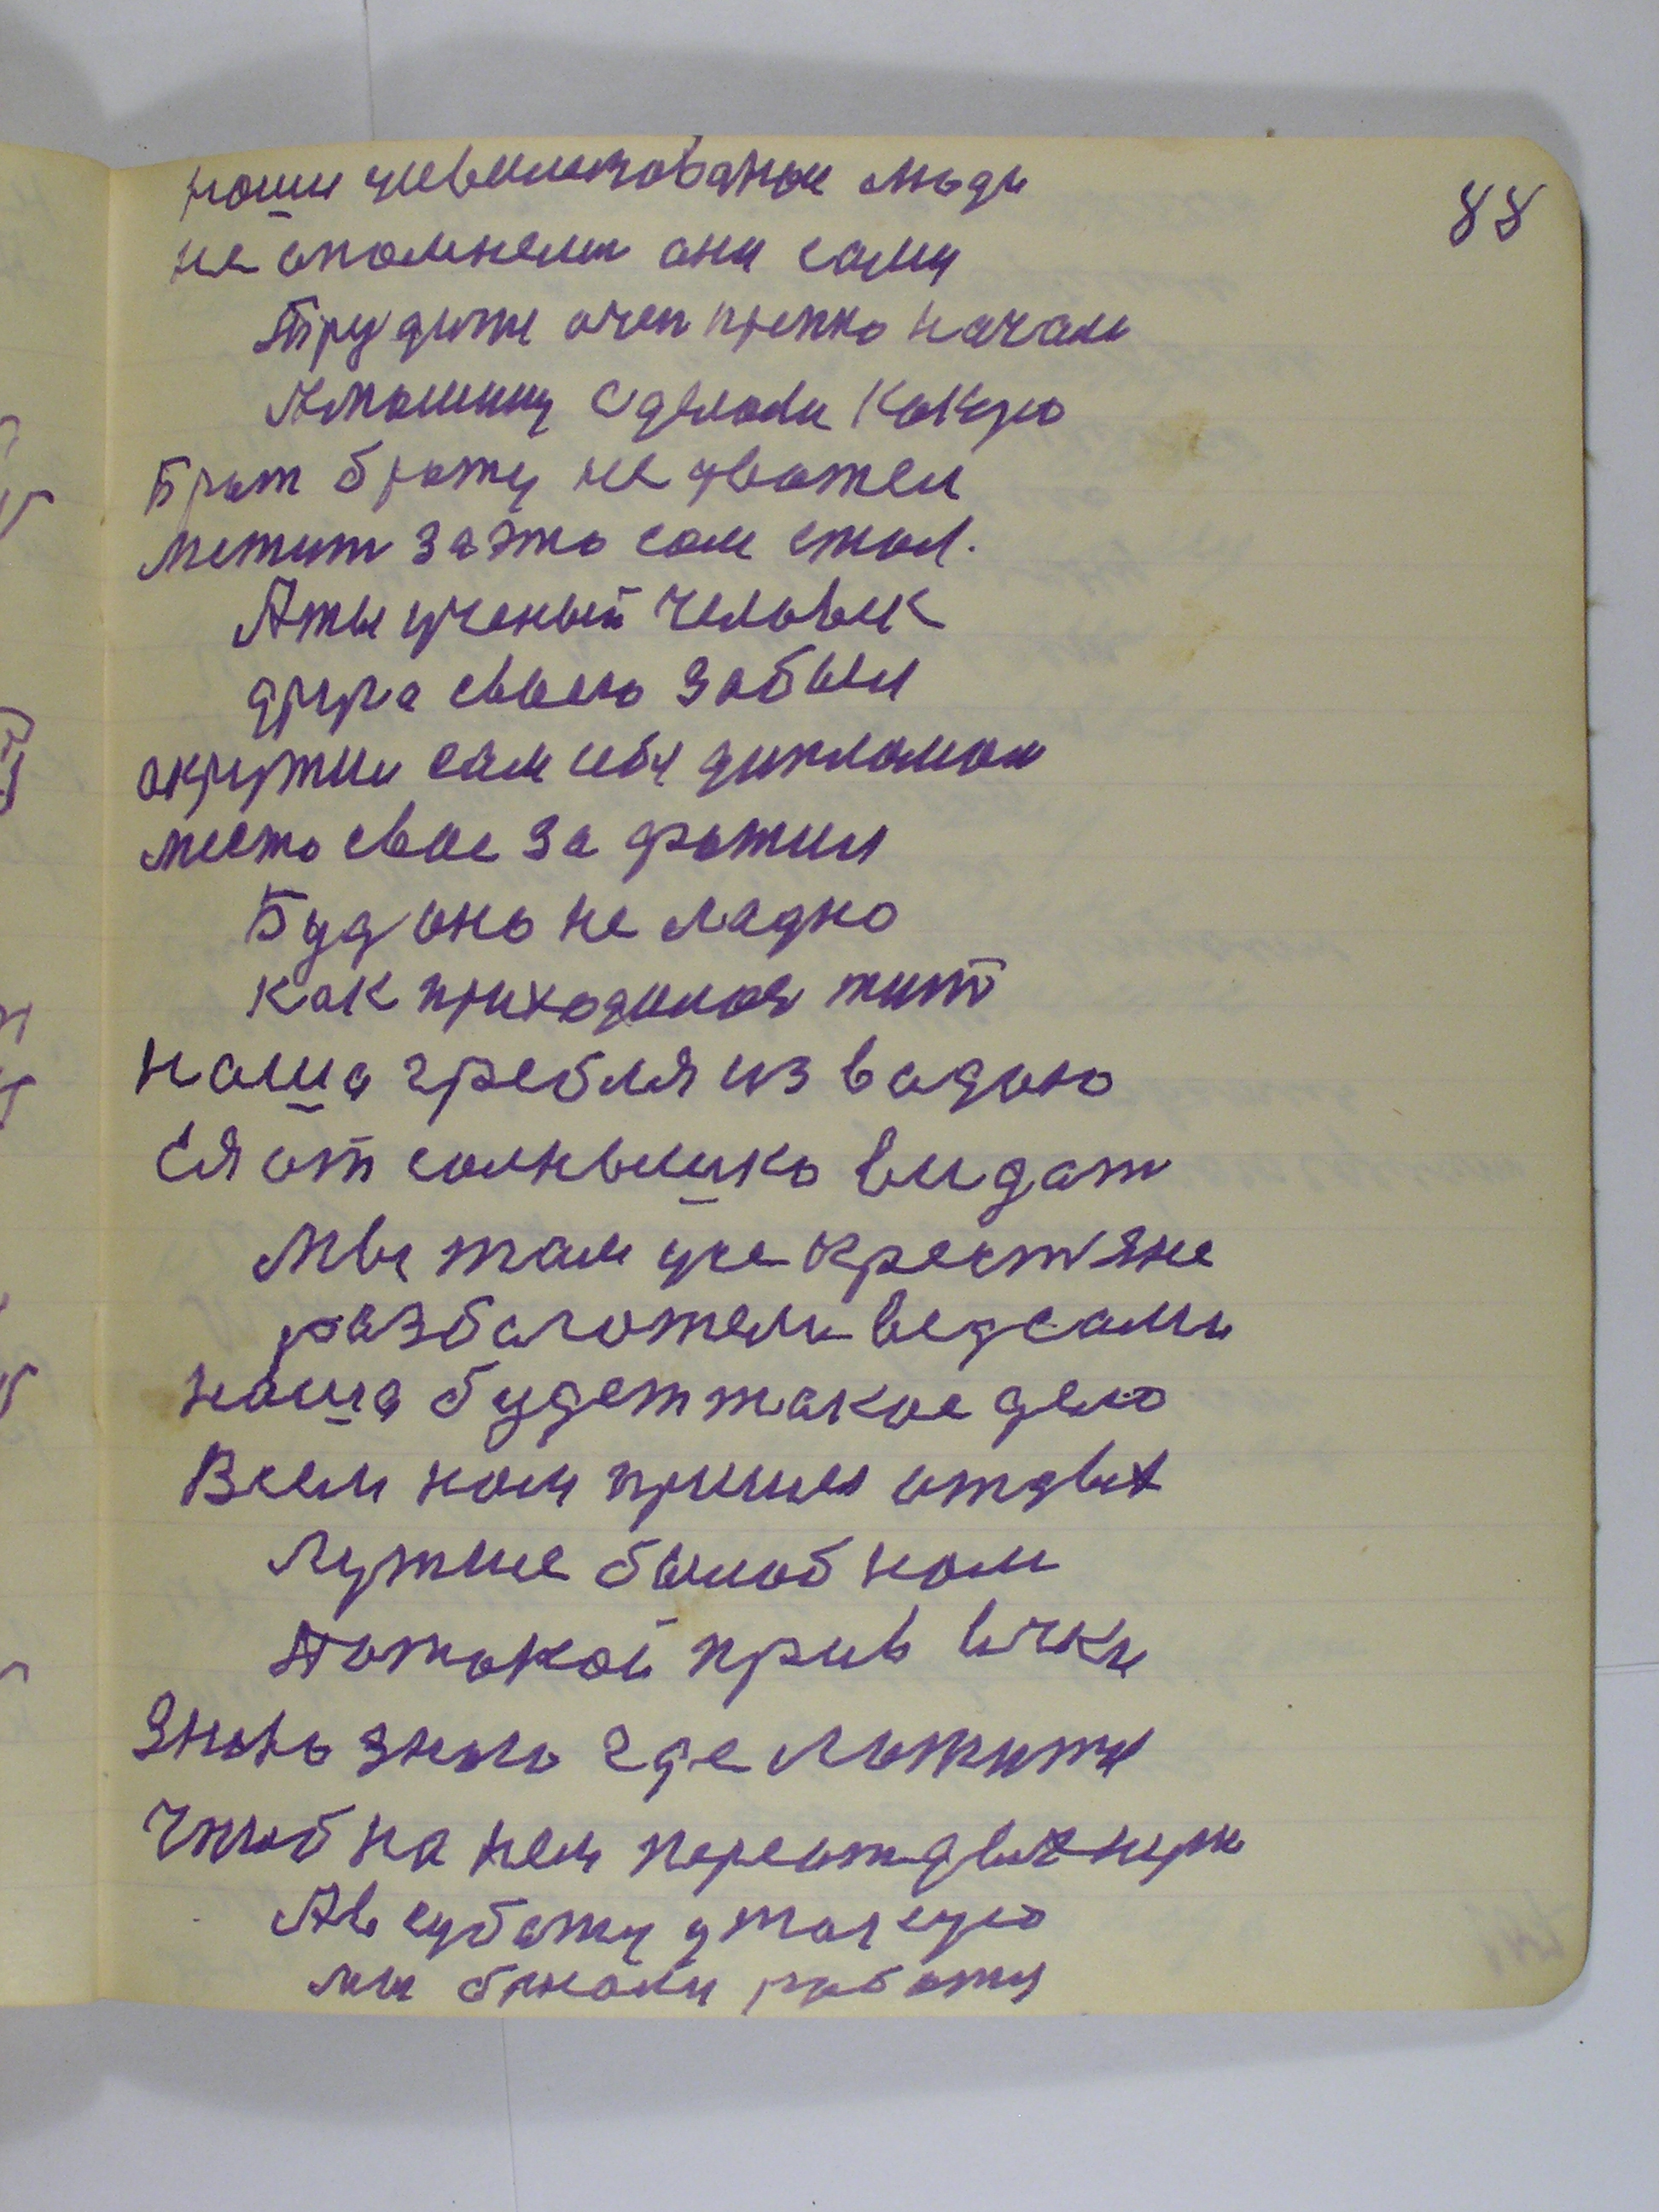 88
наши цивилизованои люди
не опомнели они сами
Трудитя очен крепко начали
Амашину сделали какую
Брат брату не уважел
метит заэто сам стал.
Аты ученый человек
друга своего забыл
окружил сам себя дипломом
место свое за фатил
Буд оно не ладно
как приходилоя жит
наша гребля из вадою
Ея от солнышко видат
мы там уже крестяне
разбагожели ведсами
наша будет такое дело
Всем нам пришло отдых
Лутше былоб нам
Потокой прив ычки
Знаво знаго где ложитя
Чтоб на нем переотдыхнуть
Ав суботу утакую
мы брасали работу